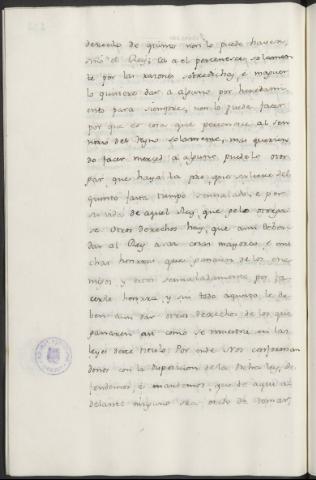 derecho de quinto non lo puede haver,
sino el Rey, ca a el pertenence solamen
te por las razones sobredichas, e maguer
lo quisiere dar a alguno por heredami-
ento para siempre, non lo puede facer
por que es cosa que pertenence al señ
orio del Reyno solamente, mas querien
do facer merced a alguno, puedelo otor
gar que haya la pro, que saliere del
quinto fasta tiempo señalado, e por
su vida de aquel Rey, que gelo otorga
se. Otros derechos hay, que aun deben
dar al Rey asar cosas mayores, e mu
chas honrras que ganasen de los ene
migos, y esto señaladamente por fa
cerle honrra, y sin todo aquesto le de
ben aun dar otros derechos de los que
ganaren así como se muestra en las
leyes deste titulo. Por ende Nos conforman
donos con la disposicion de la dicha ley, de
fendemos, e mandamos, que de aqui a-
delante ninguno sea osado de tomar,